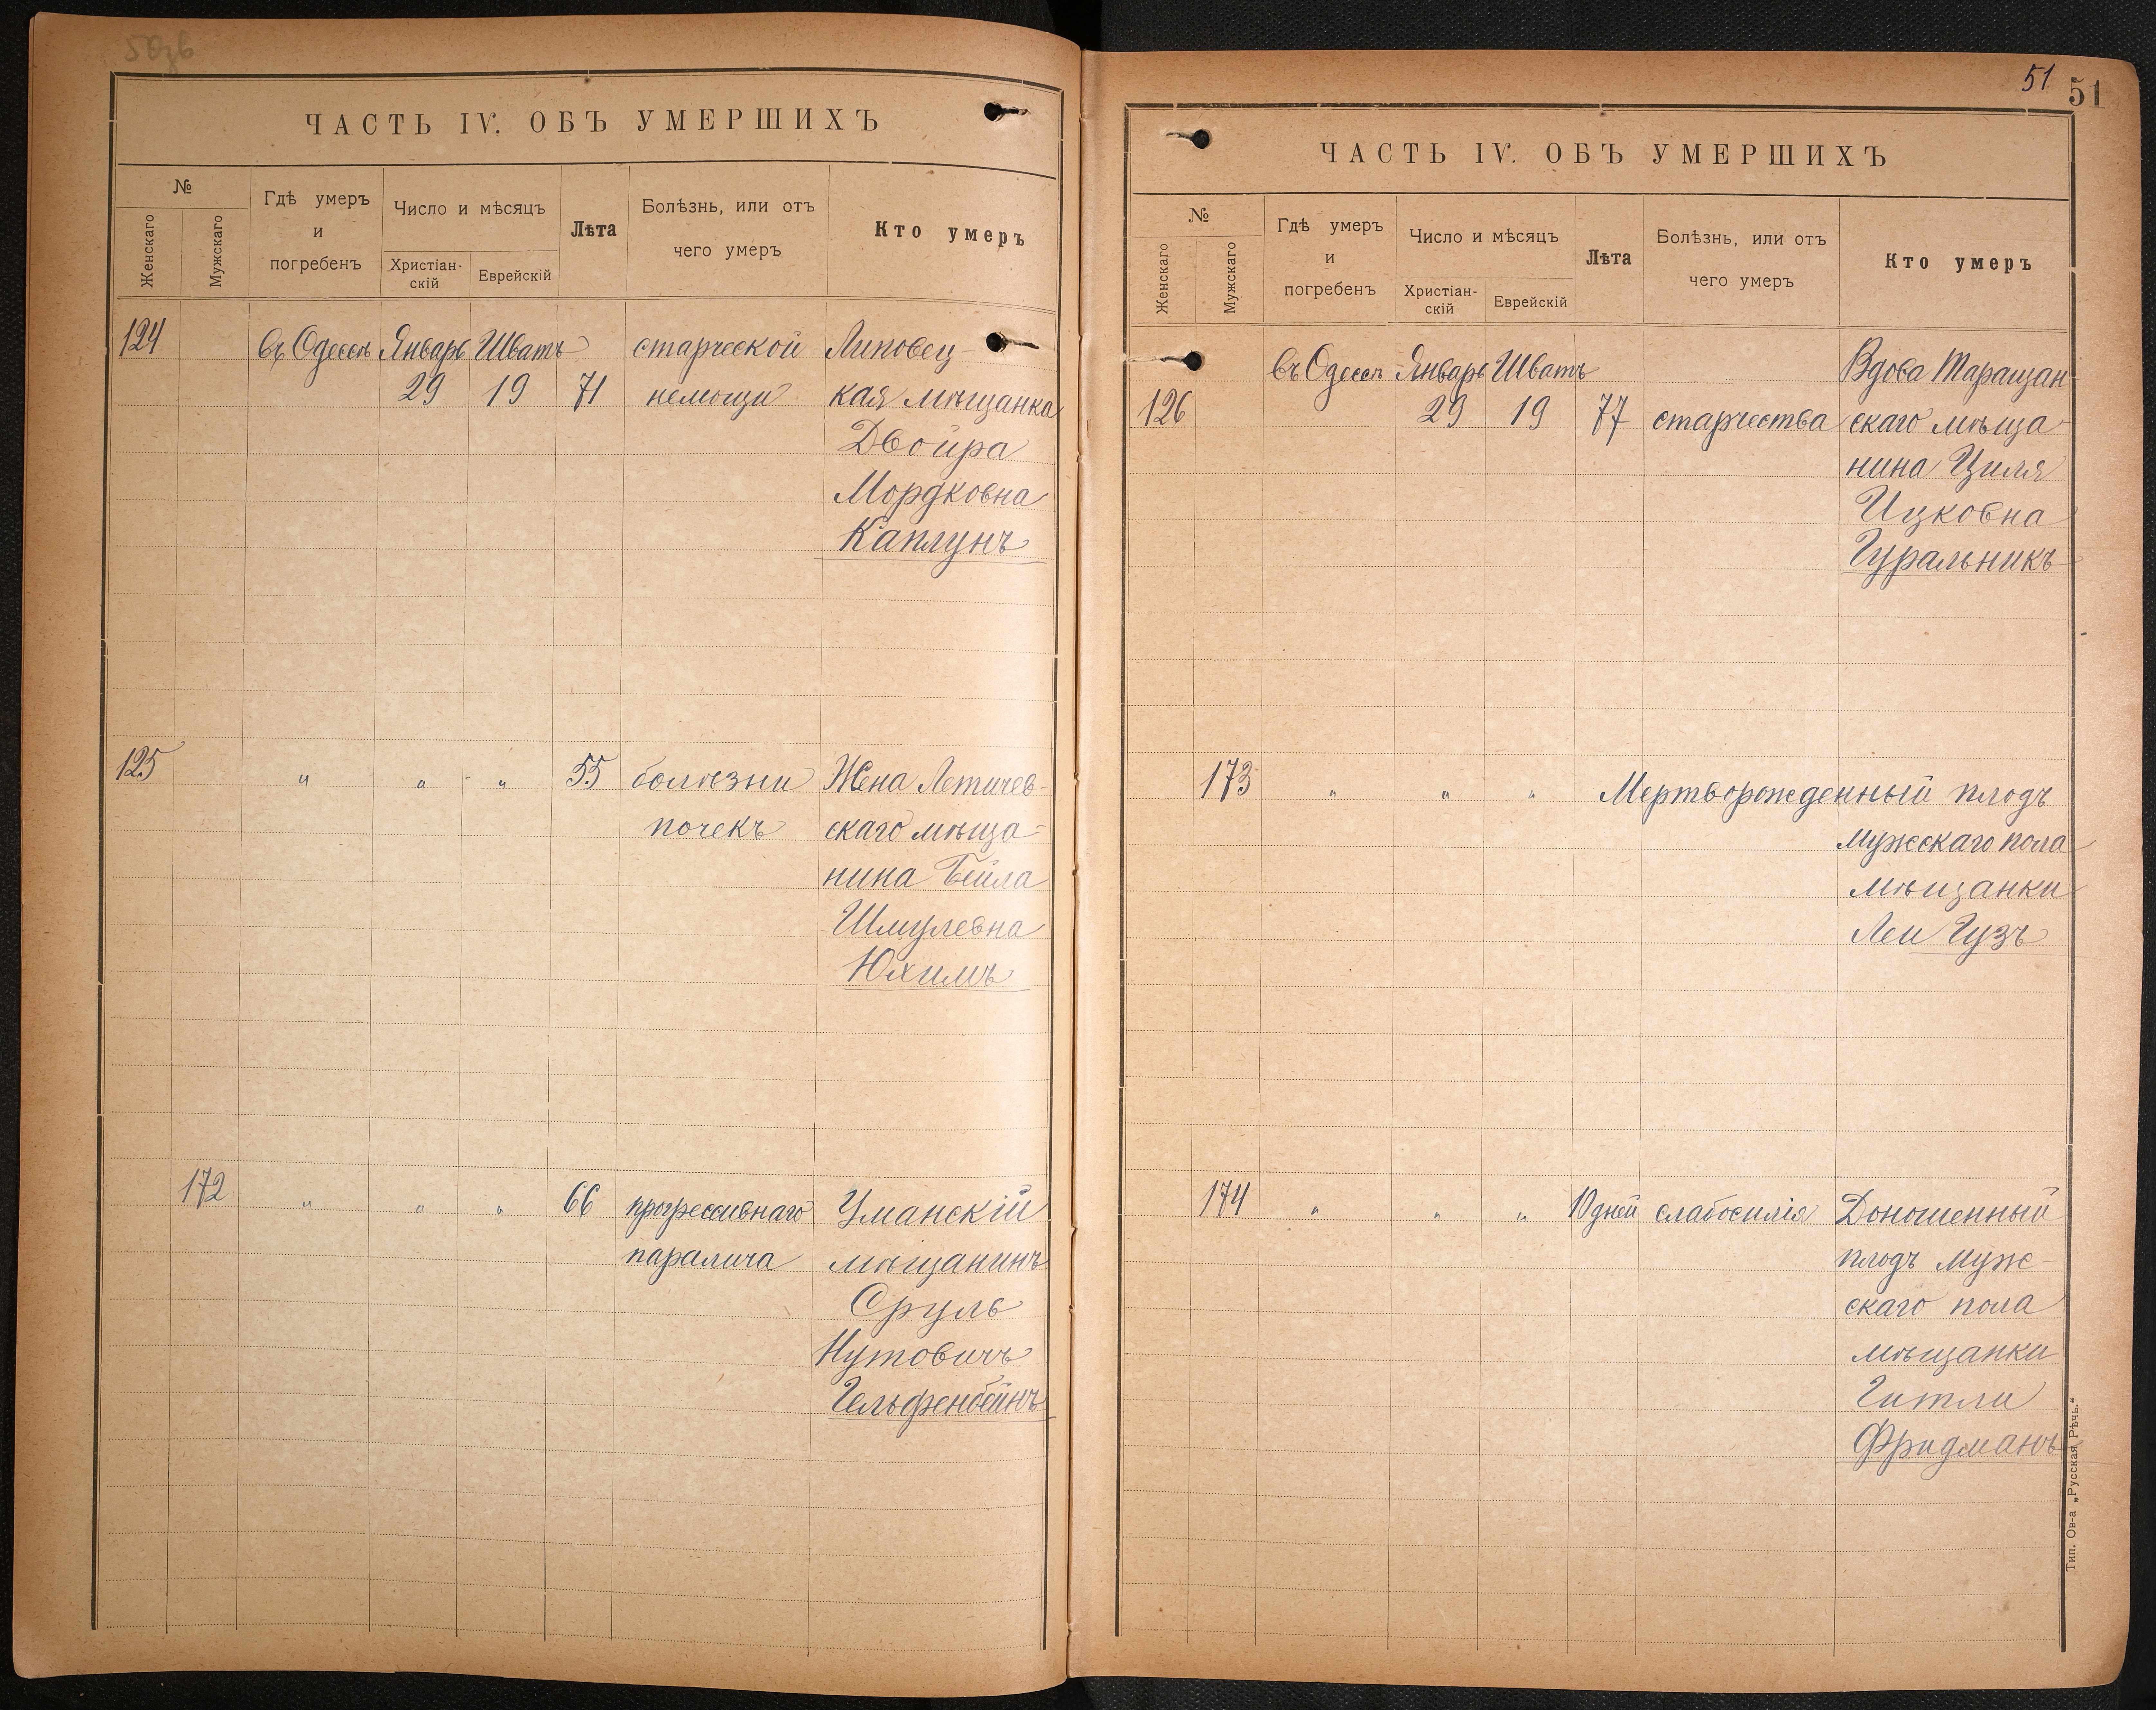 50зв
ЧАСТЬ IV. ОБЪ УМЕРШИХЪ
№
Женскаго
Мужскаго
Гдѣ умеръ
и
погребенъ
Число и мѣсяцъ
Христіан-
скій
Еврейскій
Лѣта
Болѣзнь, или отъ
чего умеръ
Кто умеръ
124 въ Одессѣ Январь Шватъ старческой Липовец
29 19 71 немощи кая мѣщанка
Двойра
Мордковна
Каплунъ
125 " " " 55 болѣзни Жена Летичев-
почекъ скаго мѣща-
нина Бейла
Шмулевна
Юхимъ
172 " " " 66 прогрессивнаго Уманскій
паралича мѣщанинъ
Сруль
Нутовичъ
Гельфенбейнъ
51 51
ЧАСТЬ IV. ОБЪ УМЕРШИХЪ
№
Женскаго
Мужскаго
Гдѣ умеръ
и
погребенъ
Число и мѣсяцъ
Христіан-
скій
Еврейскій
Лѣта
Болѣзнь, или отъ
чего умеръ
Кто умеръ
въ Одессѣ Январь Шватъ Вдова Таращан
126 29 19 77 старчества скаго мѣща
нина Циля
Ицковна
Гуральникъ
173 " " " Мертворожденный плодъ
мужскаго пола
мѣщанки
Леи Гузъ
174 " " " 10 дней слабосилія Доношенный
плодъ муж-
скаго пола
мѣщанки
Гитли
Фридманъ
Тип. Ов-а „Русская Рѣчь."